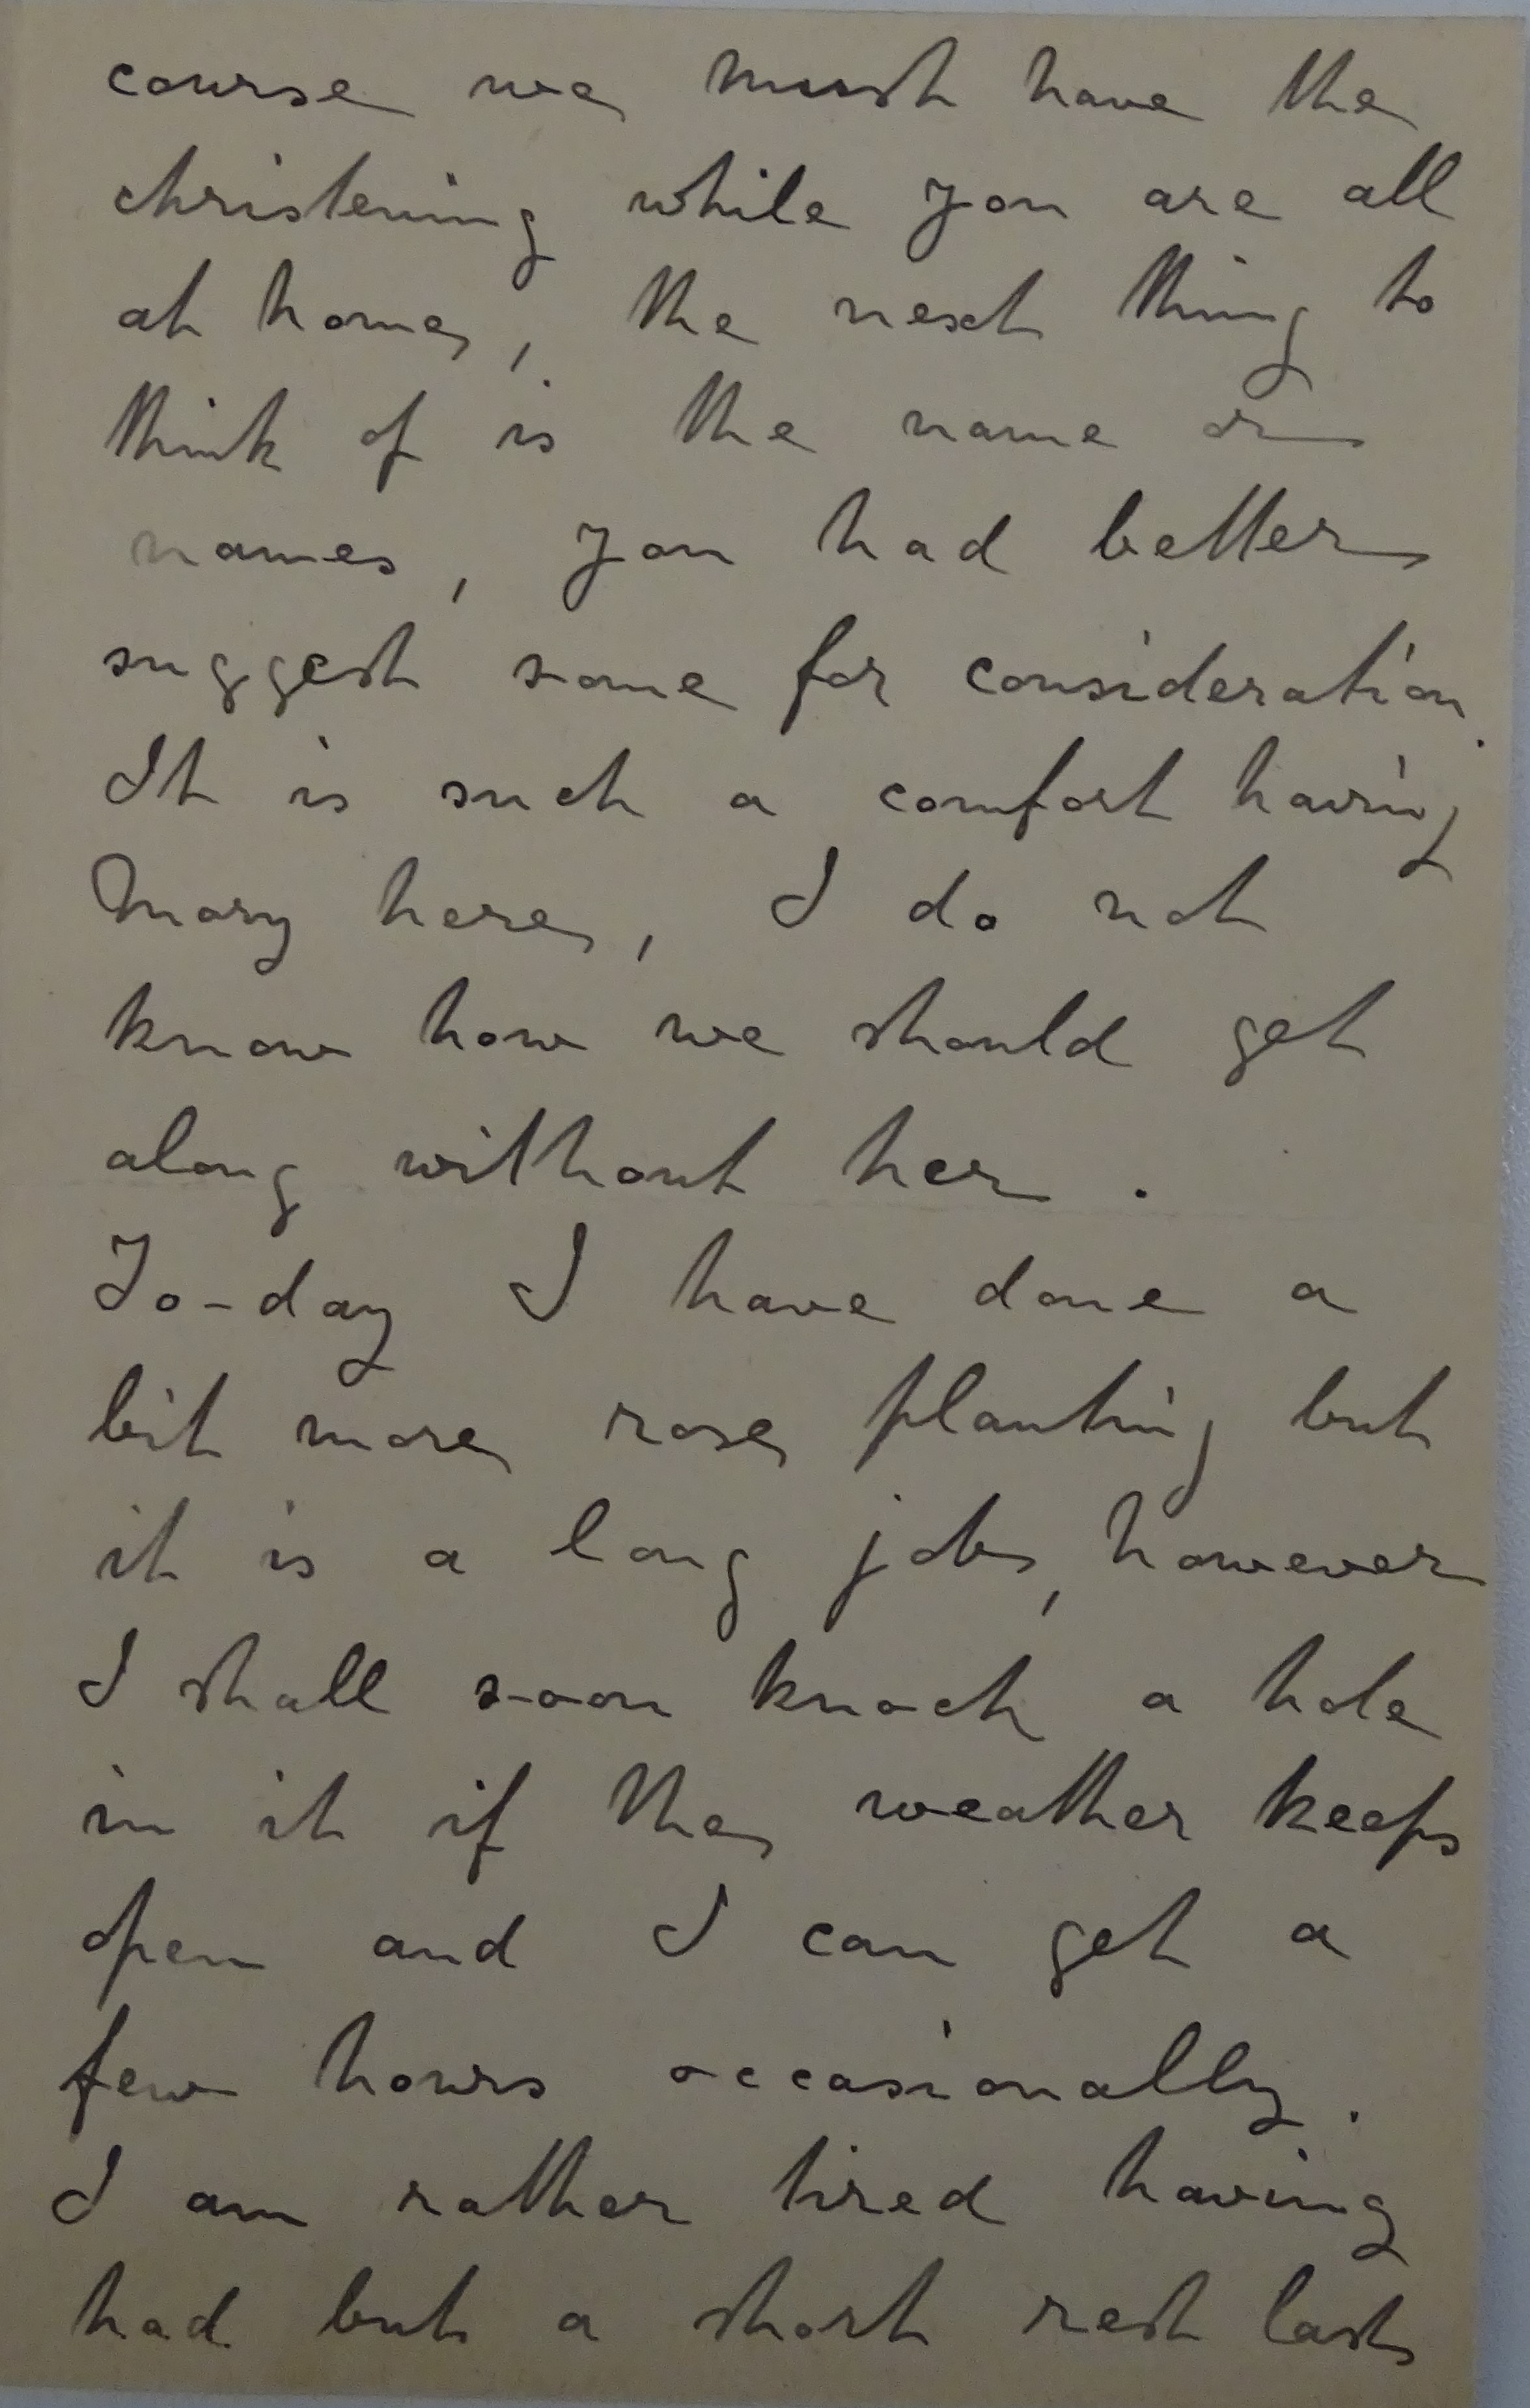 course we must have the
christening while you are all
at home, the next thing to
think of is the name or
names, you had better
suggest some for consideration.
It is such a comfort having
Mary here, I do not
know how we should get
along without her.
To-day I have done a
bit more rose planting but
it is a long job, however
I shall soon knock a hole
in it if the weather keeps
open and I can get a
few hours occasionally.
I am rather tired having
had but a short rest last